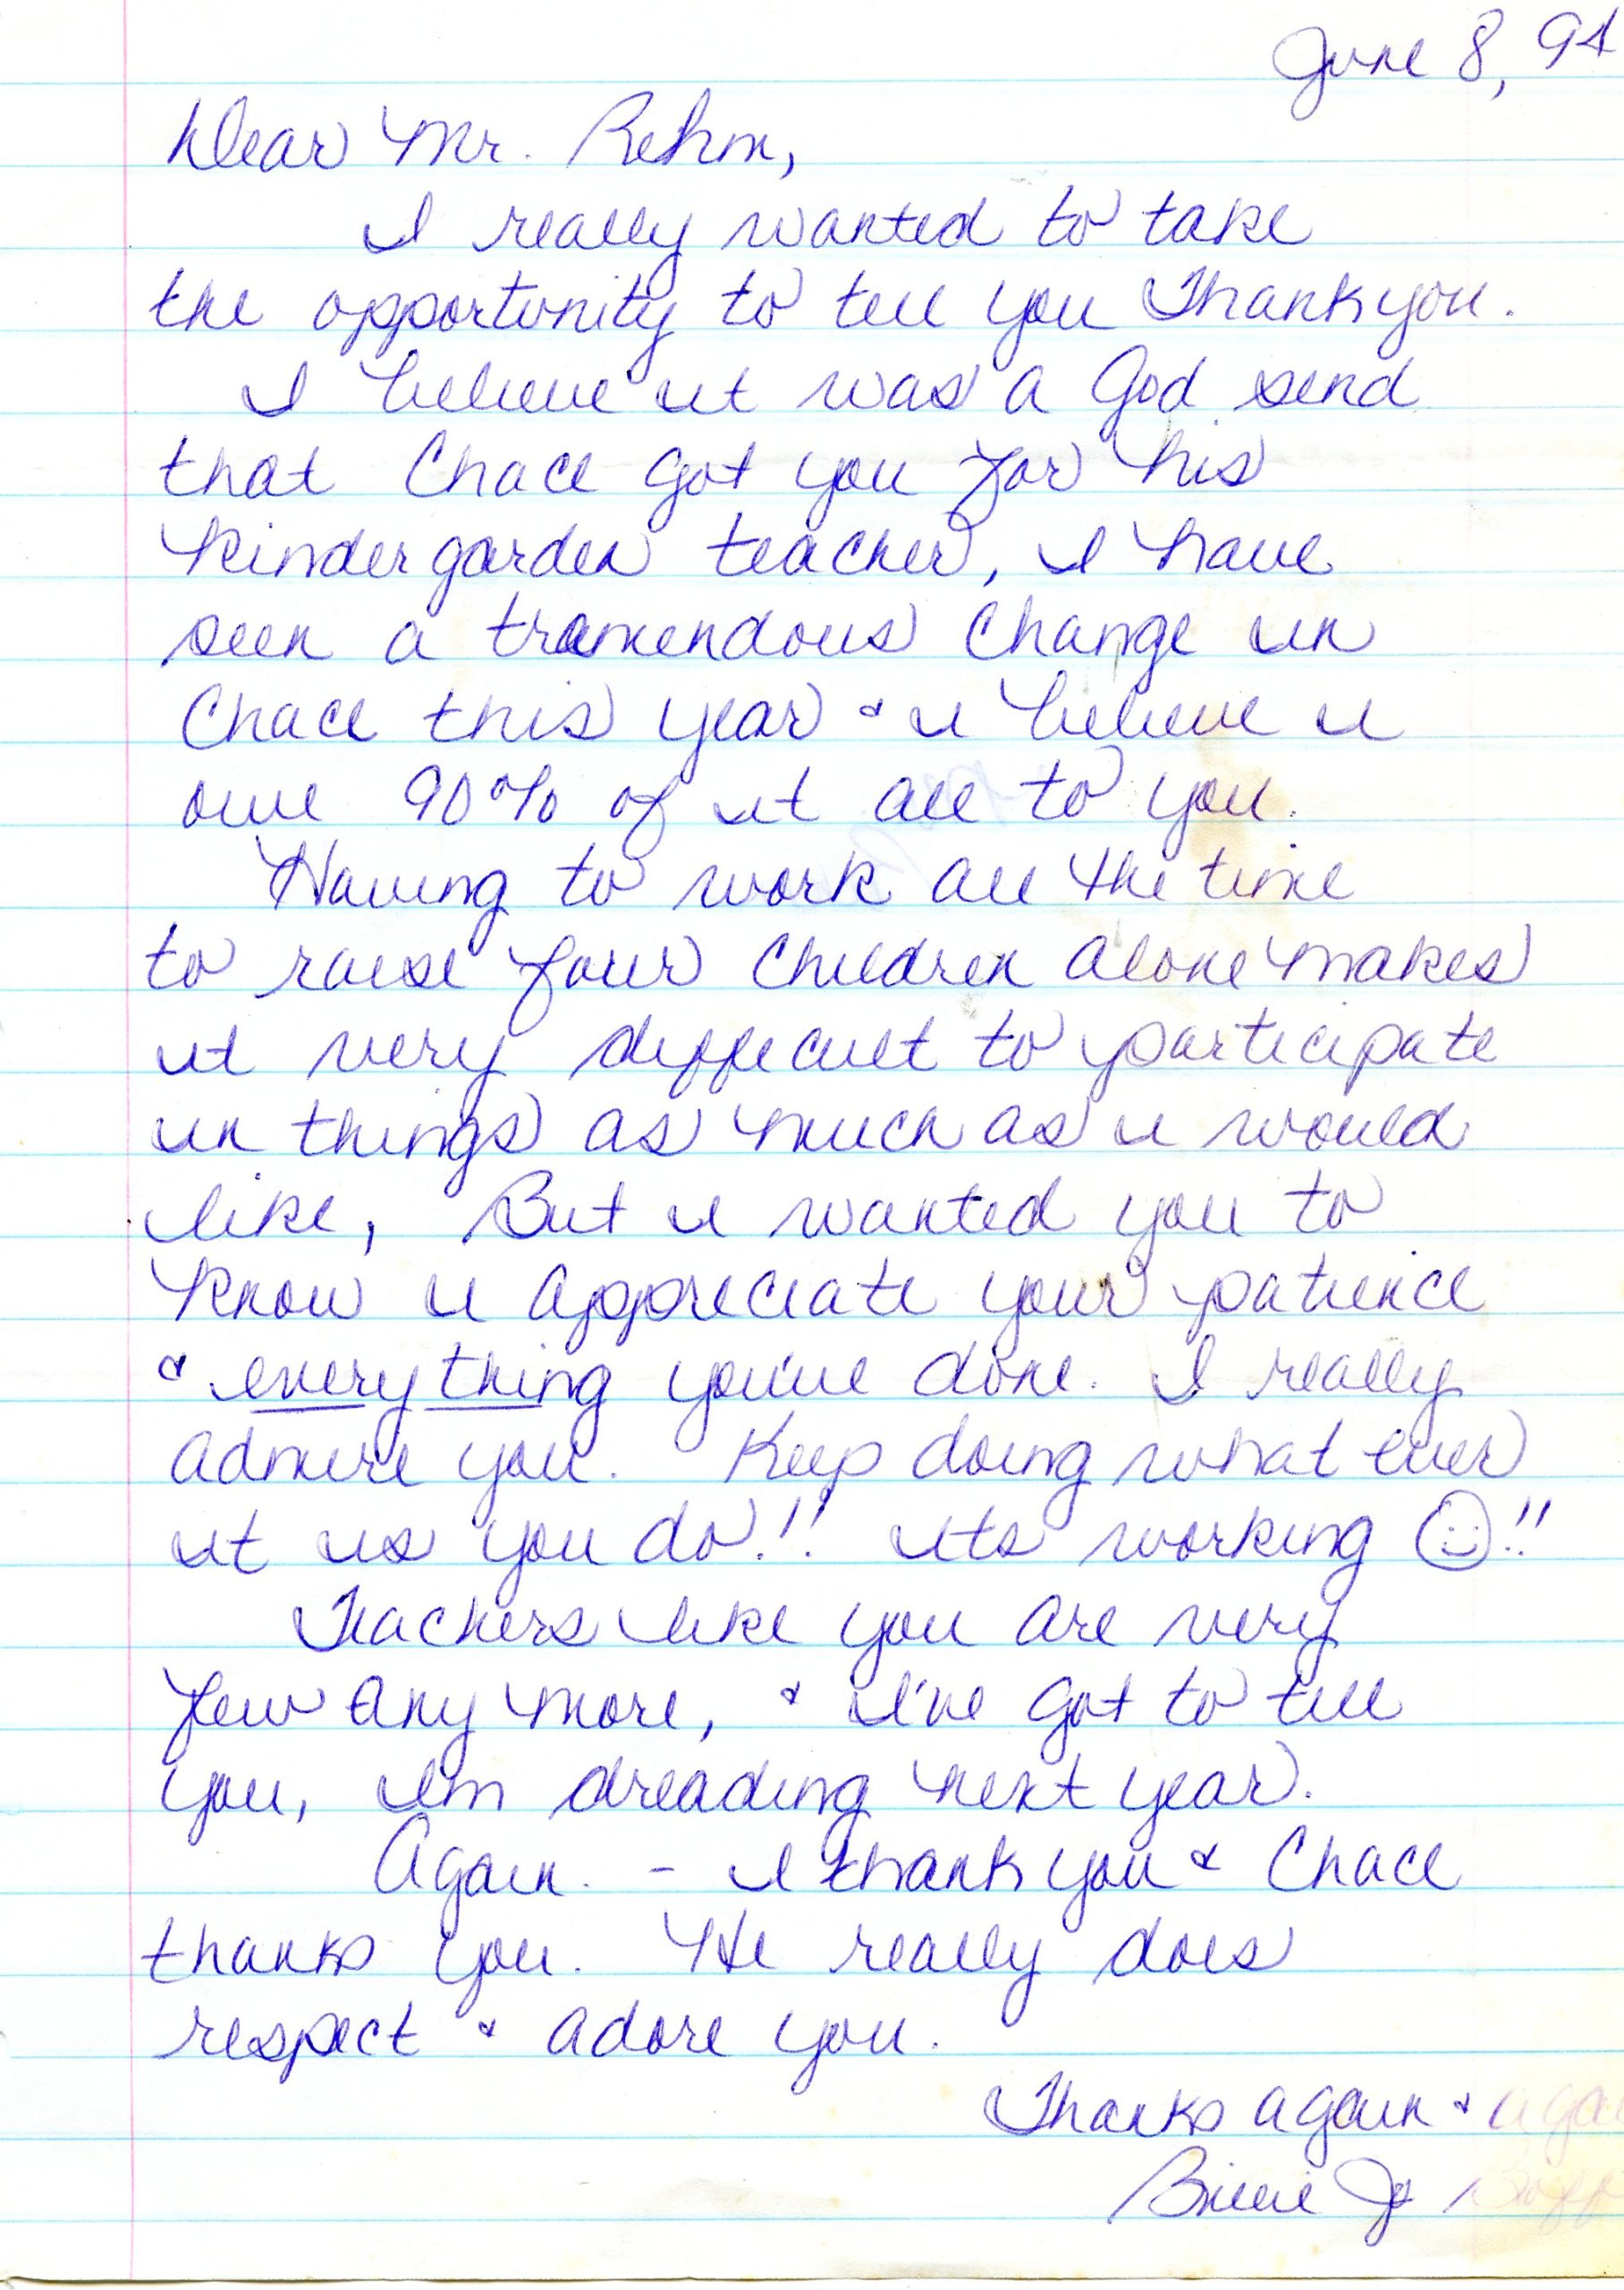 June 8, 94
Dear Mr. Rehm,
I really wanted to take
the opportunity to tell you Thank you.
I believe it was a God send
that Chace got you for his
kindergarden teacher, I have
seen a tramendous change in
Chace this year & I believe I
owe 90% of it all to you.
Having to work all the time
to raise four children alone makes
it very difficult to participate
in things as much as I would
like, But I wanted you to
know I appreciate your patience
& every thing you've done. I really
admire you. Keep doing what ever
it is you do!! Its working ☺!!
Teachers like you are very
few any more, & I've got to tell
you, Im dreading next year.
Again. - I thank you & Chace
thanks you. He really does
respect & adore you.
Thanks again & agai
Billie Jo